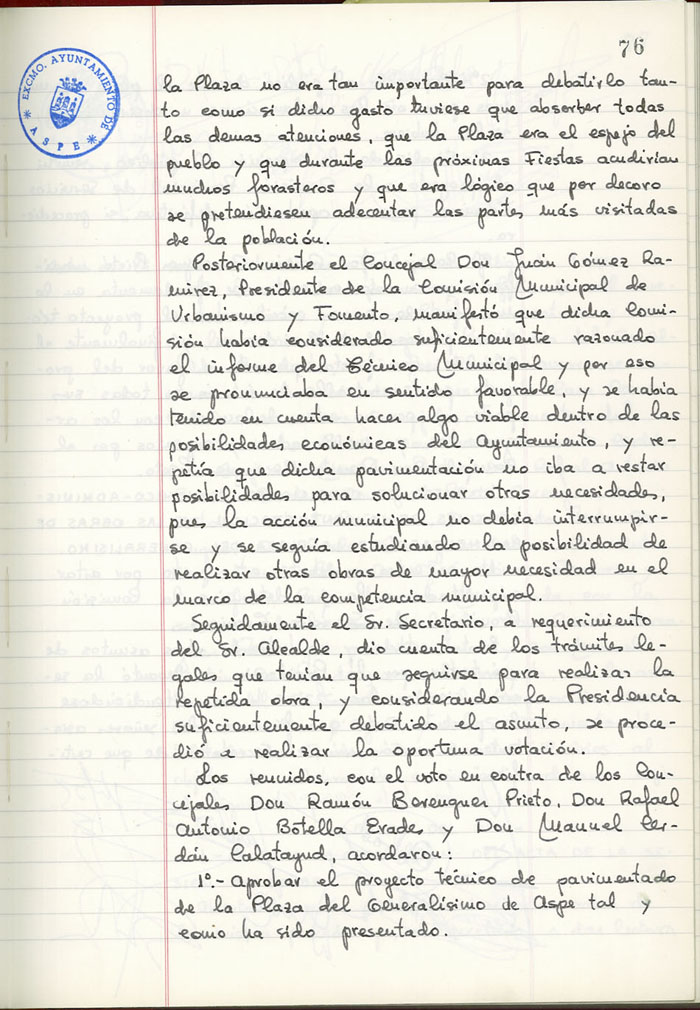 76
EXCMO. AYUNTAMIENTO DE
* ASPE *
la Plaza no era tan importante para debatirlo tan-
to como si dicho gasto tuviese que absorber todas
las demas atenciones, que la Plaza era el espejo del
pueblo y que durante las próximas Fiestas acudirian
muchos forasteros y que era lógico que por decoro
se pretendiesen adecentar las partes más visitadas
de la población.
Posteriormente el Concejal Don Juan Gómez Ra-
mirez, Presidente de la Comisión Municipal de
Urbanismo y Fomento, manifestó que dicha Comi-
sión había considerado suficientemente razonado
el informe del Técnico Municipal y por eso
se pronunciaba en sentido favorable, y se había
tenido en cuenta hacer algo viable dentro de las
posibilidades económicas del Ayuntamiento, y re-
petía que dicha pavimentación no iba a restar
posibilidades para solucionar otras necesidades,
pues la acción municipal no debia interrumpir-
se y se seguía estudiando la posibilidad de
realizar otras obras de mayor necesidad en el
marco de la competencia municipal.
Seguidamente el Sr. Secretario, a requerimiento
del Sr. Alcalde, dio cuenta de los trámites le-
gales que tenian que seguirse para realizar la
repetida obra, y considerando la Presidencia
suficientemente debatido el asunto, se proce-
dió a realizar la oportuna votación.
Los reunidos, con el voto en contra de los Con-
cejales Don Ramón Berenguer Prieto, Don Rafael
Antonio Botella Erades y Don Manuel Cer-
dán Calatayud, acordaron:
1º.- Aprobar el proyecto técnico de pavimentado
de la Plaza del Generalísimo de Aspe tal y
como ha sido presentado.